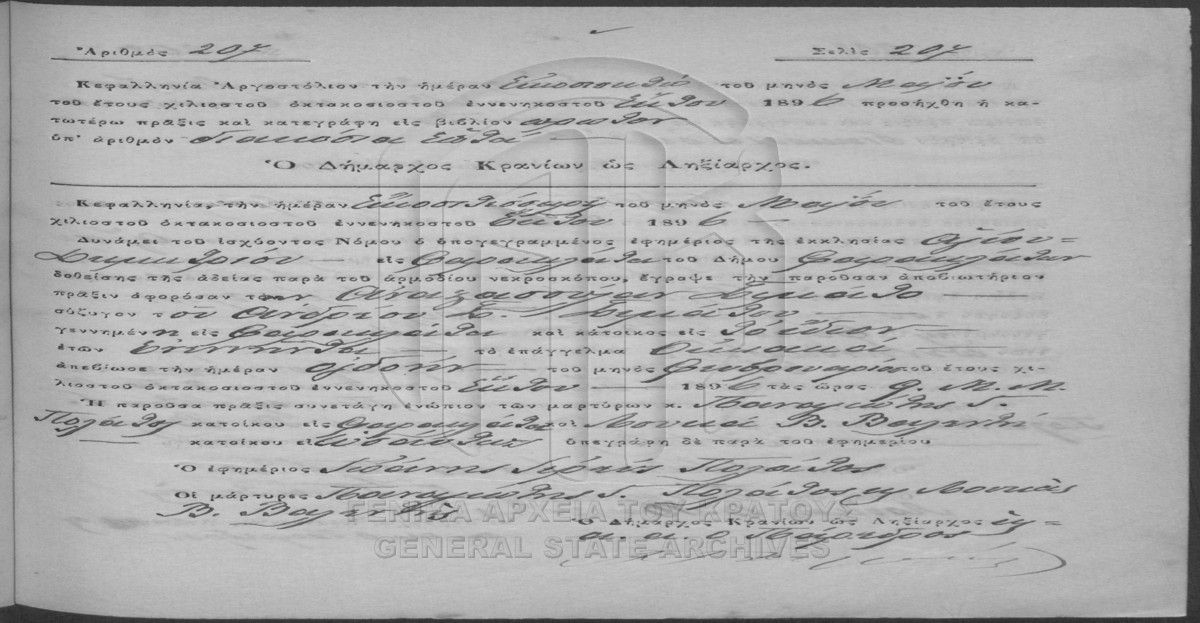 Ἀριθμὸς 207 Σελὶς 207
Κεφαλληνία Ἀργοστόλιον τὴν ἡμέραν τοῦ μηνὸς Μαΐου
τοῦ ἔτους χιλιοστοῦ ὀκτακοσιοστοῦ ἐννενηκοστοῦ Ἕκτου 1896 προσήχθη ἡ κα-
τωτέρω πρᾶξις καὶ κατεγράφη εἰς βιβλίον πρῶτον
ὑπ' ἀριθμὸν διακόσια ἑπτά
Ὁ Δήμαρχος Κρανίων ὡς Ληξίαρχος.
Κεφαλληνία, τὴν ἡμέραν τοῦ μηνὸς Μαΐου τοῦ ἔτους
χιλιοστοῦ ὀκτακοσιοστοῦ ἐννενηκοστοῦ Ἕκτου 1896
Δυνάμει τοῦ ἰσχύοντος Νόμου ὁ ὑπογεγραμμένος ἐφημέριος τῆς ἐκκλησίας Ἁγίου
Δημητρίου εἰς Φαρακλάτα τοῦ Δήμου
δοθείσης τῆς ἀδείας παρὰ τοῦ ἁρμοδίου νεκροσκόπου, ἔγραψε τὴν παροῦσαν ἀποβιωτήριον
πρᾶξιν ἀφορῶσαν την
σύζυγον τοῦ
γεννημένη εἰς Φαρακλάτα καὶ κάτοικος εἰς τὸ ἴδιον
ἐτῶν ἑνενῆντα τὸ ἐπάγγελμα οἰκιακά
ἀπεβίωσε τὴν ἡμέραν ὀγδόην τοῦ μηνὸς Φεβρουαρίου τοῦ ἔτους χι-
λιοστοῦ ὀκτακοσιοστοῦ ἐννενηκοστοῦ Ἕκτου 1896 τὰς ὥρας 9. Μ. Μ.
Ἡ παροῦσα πρᾶξις συνετάγη ἐνώπιον τῶν μαρτύρων κ. Παναγιώτης Γ.
Πολλάτος κατοίκου εἰς Φαρακλάτα καὶ Λουκᾶ Β.
κατοίκου εἰς ὑπεγράφη δὲ παρὰ τοῦ ἐφημερίου
Ὁ ἐφημέριος Ἰωάννης Ἱερεὺς Πολλάτος
Οἱ μάρτυρες Παναγιώτης Γ. Πολλάτος Λουκᾶς
Β.
Ὁ Δήμαρχος Κρανίων ὡς Ληξίαρχος
α. α. ὁ Πάρεδρος
ΓΕΝΙΚΑ ΑΡΧΕΙΑ ΤΟΥ ΚΡΑΤΟΥΣ
GENERAL STATE ARCHIVES